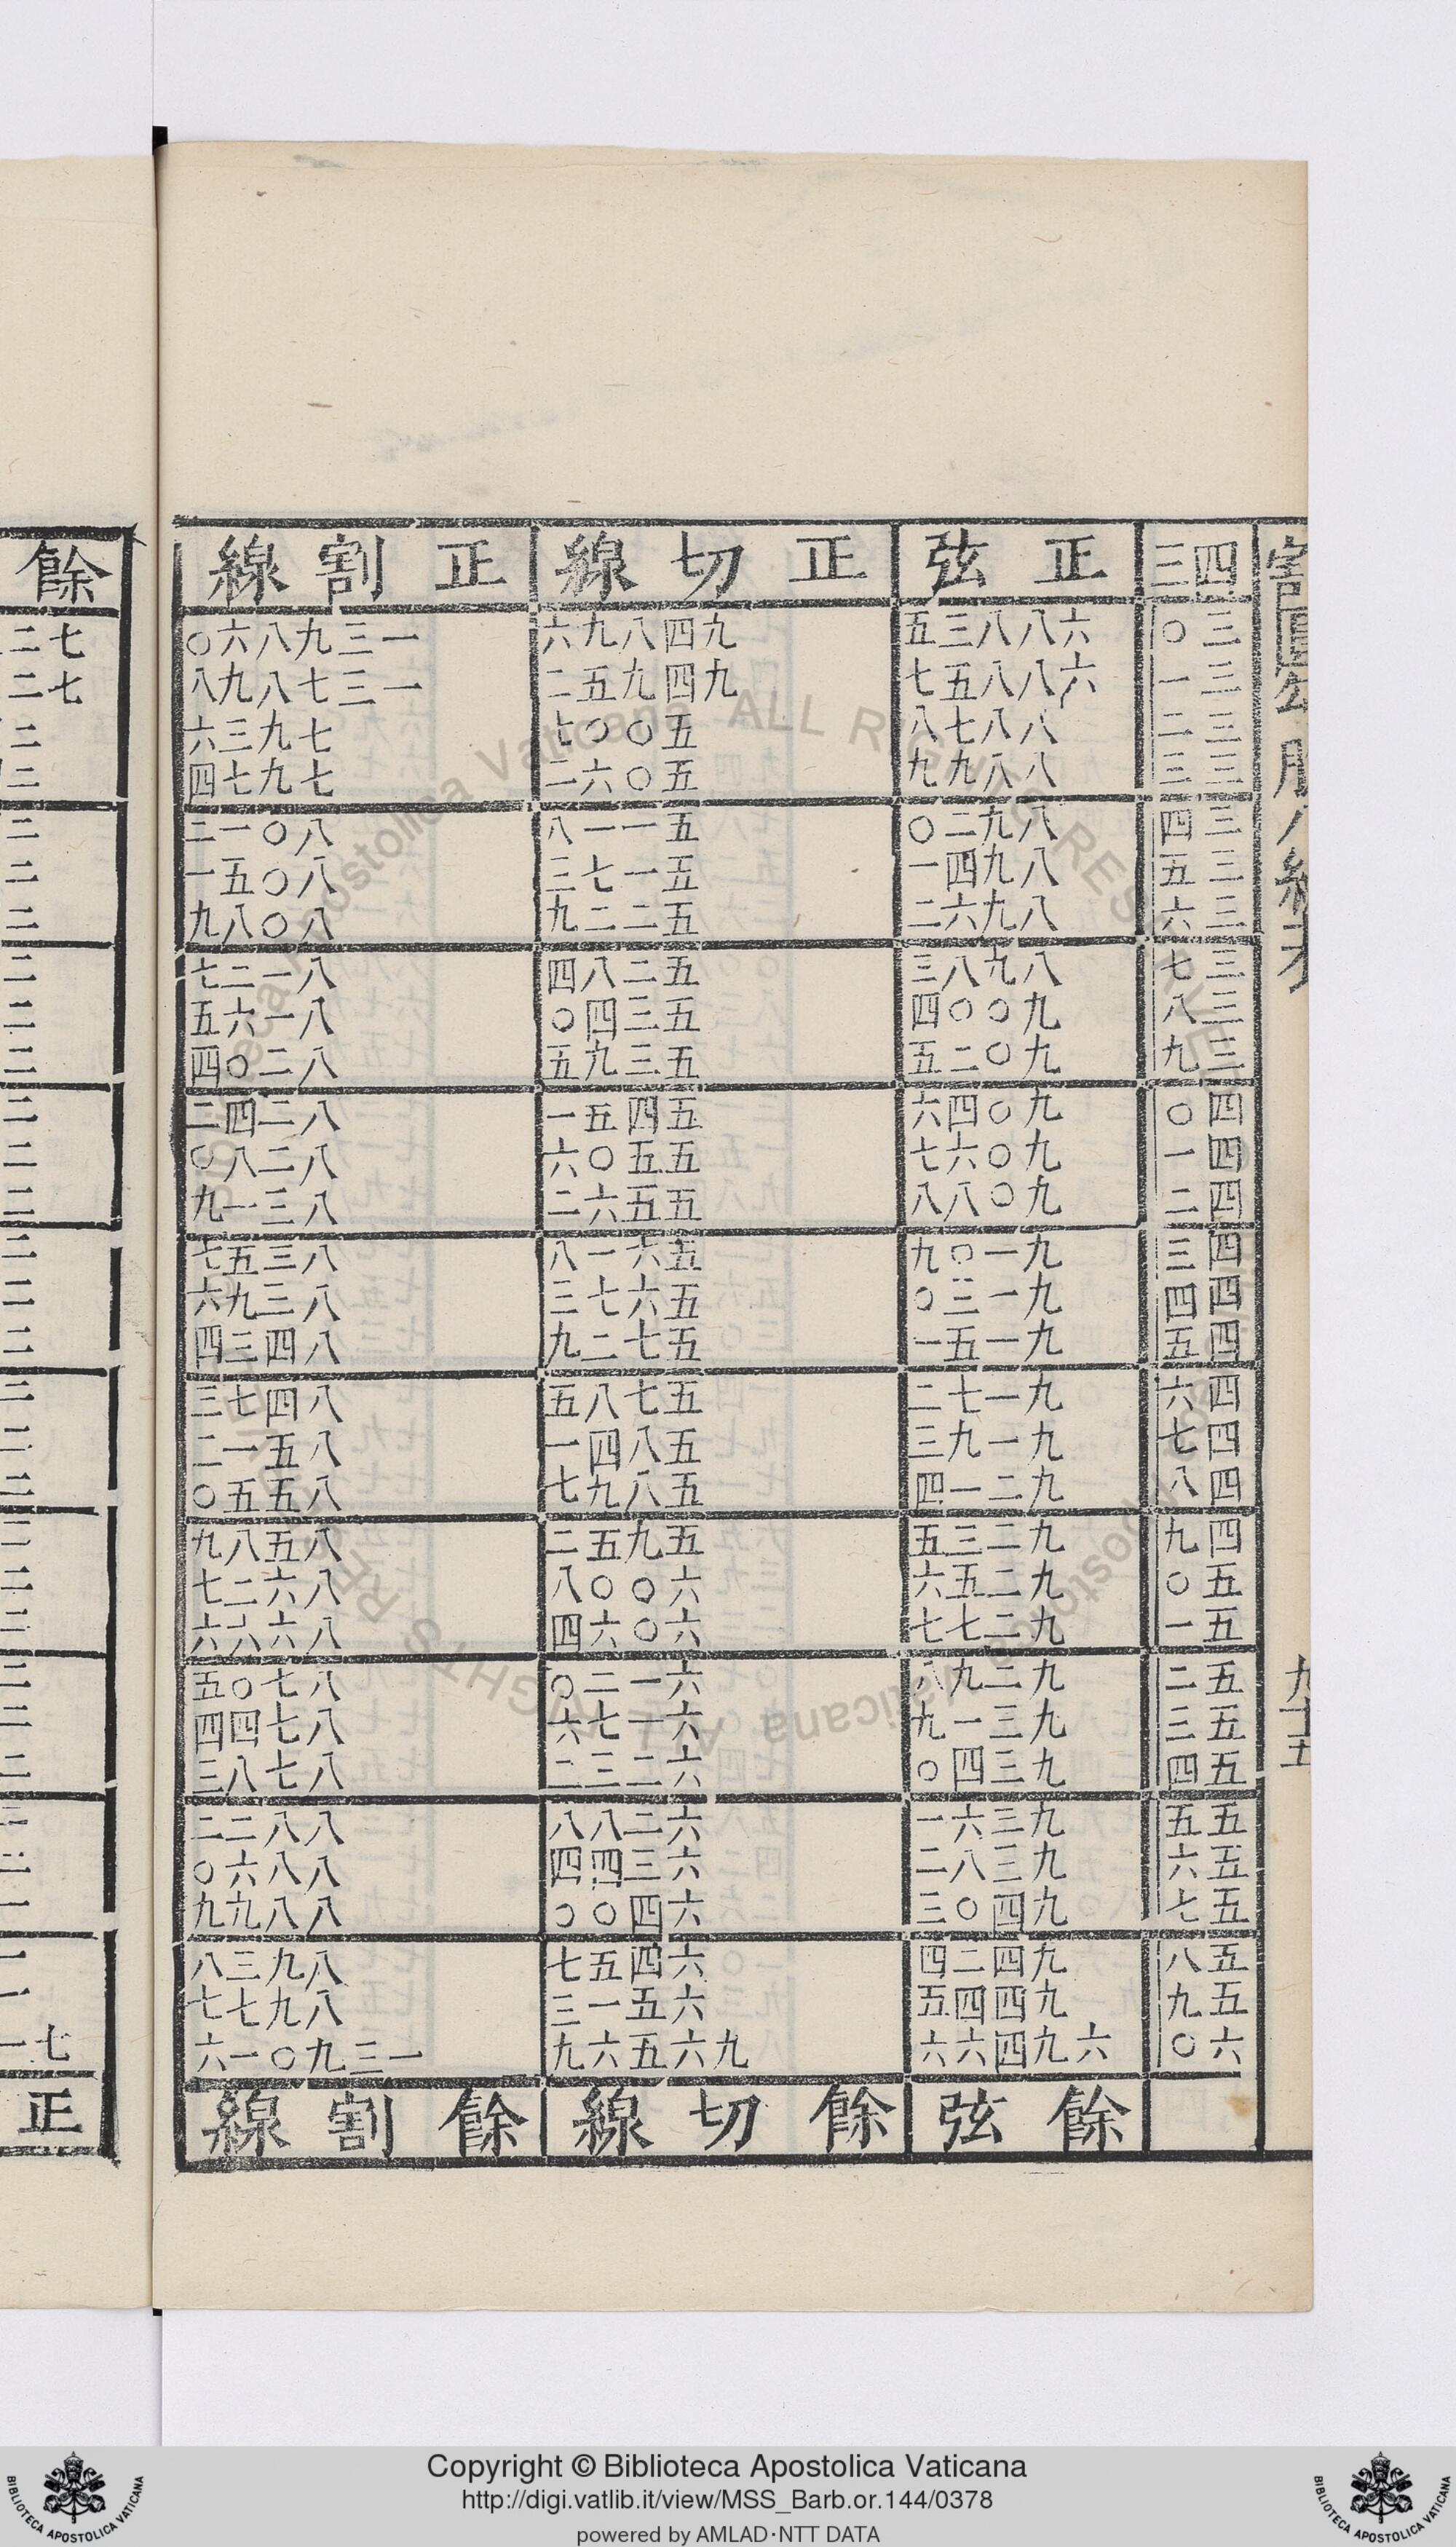 割圓勾股八線表
九十五
四三 正弦 正切線 正割線
三〇 六八八三五 九四八九六 一三九八六〇
三一 六八八五七 九四九五二 一三七八九八
三二 八八七八 五〇〇七 七九三六
三三 八八九九 五〇六二 七九七四
三四 八九二〇 五一一八 八〇一二
三五 八九四一 五一七三 八〇五一
三六 八九六二 五二二九 八〇八九
三七 八九八三 五二八四 八一二七
三八 九〇〇四 五三四〇 八一六五
三九 九〇二五 五三九五 八二〇四
四〇 九〇四六 五四五一 八二四二
四一 九〇六七 五五〇六 八二八〇
四二 九〇八八 五五六二 八三一九
四三 九一〇九 五六一八 八三五七
四四 九一三〇 五六七三 八三九六
四五 九一五一 五七二九 八四三四
四六 九一七二 五七八五 八四七三
四七 九一九三 五八四一 八五一二
四八 九二一四 五八九七 八五五〇
四九 九二三五 五九五二 八五八九
五〇 九二五六 六〇〇八 八六二七
五一 九二七七 六〇六四 八六六六
五二 九二九八 六一二〇 八七〇五
五三 九三一九 六一七六 八七四四
五四 九三四〇 六二三二 八七八三
五五 九三六一 六二八八 八八二二
五六 九三八二 六三四四 八八六〇
五七 九四〇三 六四〇〇 八八九九
五八 九四二四 六四五七 八九三八
五九 九四四五 六五一三 八九七七
六〇 六九四六六 九六五六九 一三九〇一六
餘弦 餘切線 餘割線
餘
正
Copyright © Biblioteca Apostolica Vaticana
http://digi.vatlib.it/view/MSS_Barb.or.144/0378
powered by AMLAD·NTT DATA